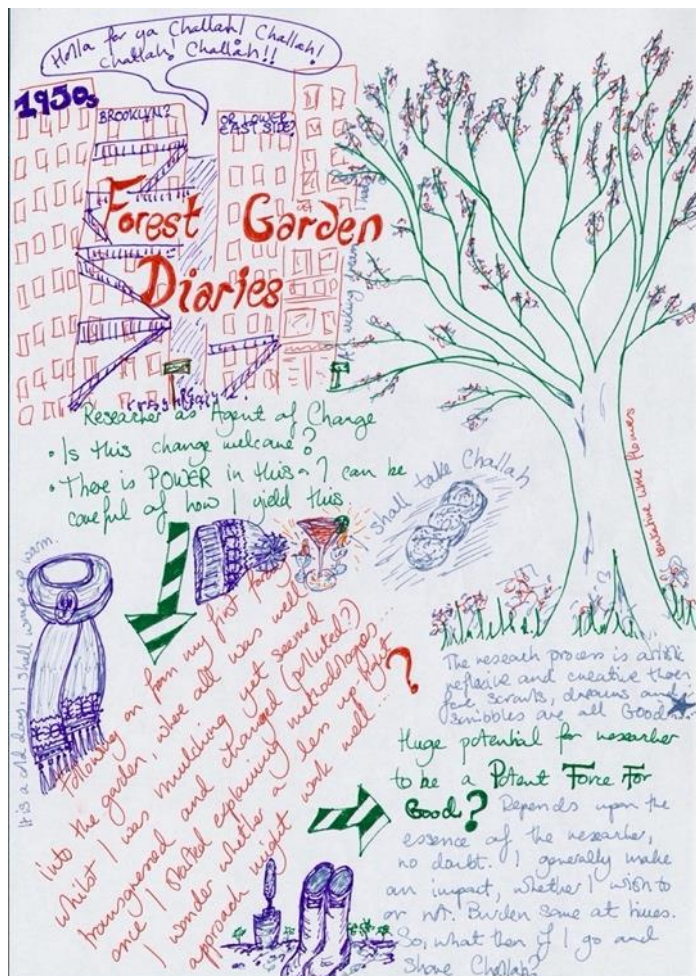 Holla for ya Challah! Challah!
Challah! Challah!!
1950s
BROOKLYN?
OR LOWER
EAST SIDE?
Forest Garden
Diaries
Researcher as Agent of Change
• Is this change welcome?
• There is POWER in this - I can be
careful of how I yield this
I shall take Challah
It is a cold day, I shall wrap up warm.
tentative little flowers
Following on from my first foray
into the garden, where all was well
whilst I was mulching yet seemed
transgressed and changed (polluted?)
once I started explaining methodologies...
I wonder whether a less up tight
approach might work well...?
The research process is artistic
reflexive and creative there
fore, scrawls, dreams and
scribbles are all Good
Huge potential for researcher
to be a Potent Force For
Good? Depends upon the
essence of the researcher,
no doubt. I generally make
an impact, whether I wish to
or not. Burden some at times.
So, what then if I go and
share Challah?